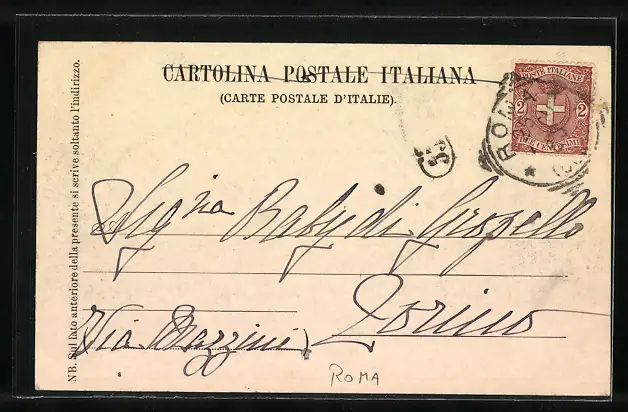 CARTOLINA POSTALE ITALIANA
(CARTE POSTALE D'ITALIE).
POSTE ITALIANE
2 2
DUE CENTESIMI
ROMA
53
Sig.na Baby di Gropello
Torino
Via Mazzini
ROMA
NB. Sul lato anteriore della presente si scrive soltanto l'indirizzo.